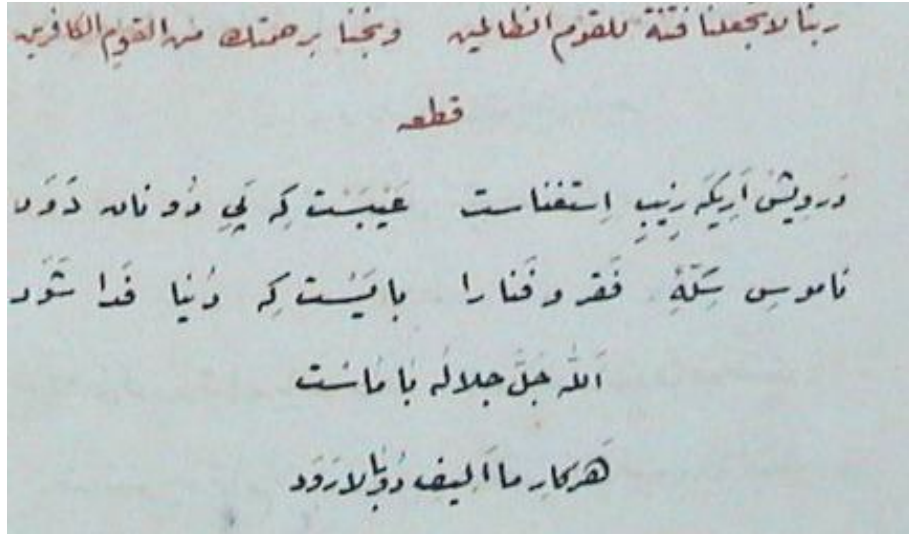 ربنا لا تجعلنا فتنة للقوم الظالمين ونجنا برحمتك من القوم الكافرين
قطعه
دَرويش اَرِيكَه زِيبِ اِستغناست عَيبَسْت كِه پَیِ دُونان دَوَد
ناموسِ سِكّهٔ فَقر و فَنا را بايَسْت كِه دُنيا فَدا شَوَد
اَللّه جَلَّ جلالُه بَا مَاسْت
هَر كارِ ما اَليف دُو بَالا رَوَد